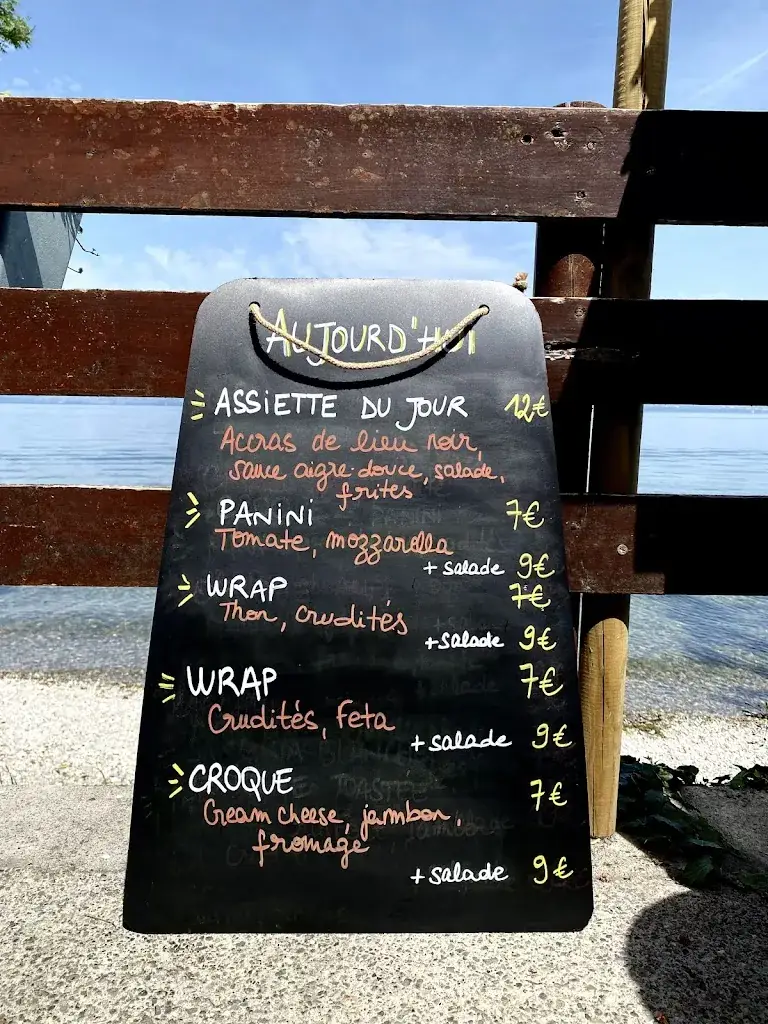 AUJOURD'HUI
ASSIETTE DU JOUR 12€
Accras de lieu noir,
sauce aigre-douce, salade,
frites
PANINI 7€
Tomate, mozzarella
+ salade 9€
WRAP 7€
Thon, crudités
+ salade 9€
WRAP 7€
Crudités, Feta
+ salade 9€
CROQUE 7€
Cream cheese, jambon,
fromage
+ salade 9€